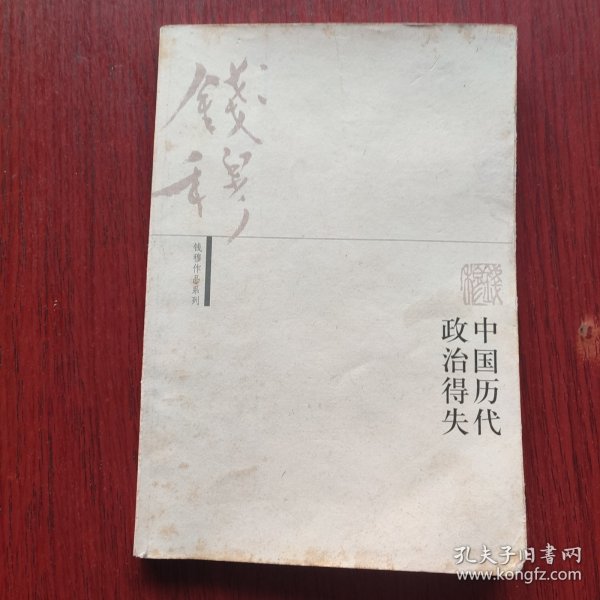 錢穆
钱穆作品系列
錢穆
中国历代
政治得失
孔夫子旧书网
www.kongfz.com